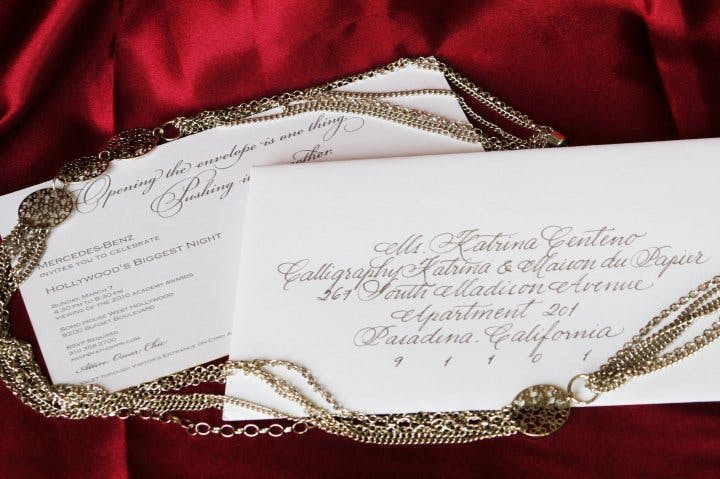 Opening the envelope is one thing.
Pushing it
MERCEDES-BENZ
INVITES YOU TO CELEBRATE
HOLLYWOOD'S BIGGEST NIGHT
SUNDAY, MARCH 7
4:30 PM TO 9:30 PM
VIEWING OF THE 2010 ACADEMY AWARDS
SOHO HOUSE WEST HOLLYWOOD
9200 SUNSET BOULEVARD
RSVP REQUIRED
310.358.2700
Attire: Oscar Chic
VALET THROUGH VISITOR'S ENTRANCE ON
Ms. Katrina Centeno
Calligraphy Katrina & Maison du Papier
267 South Madison Avenue
Apartment 201
Pasadena, California
91101